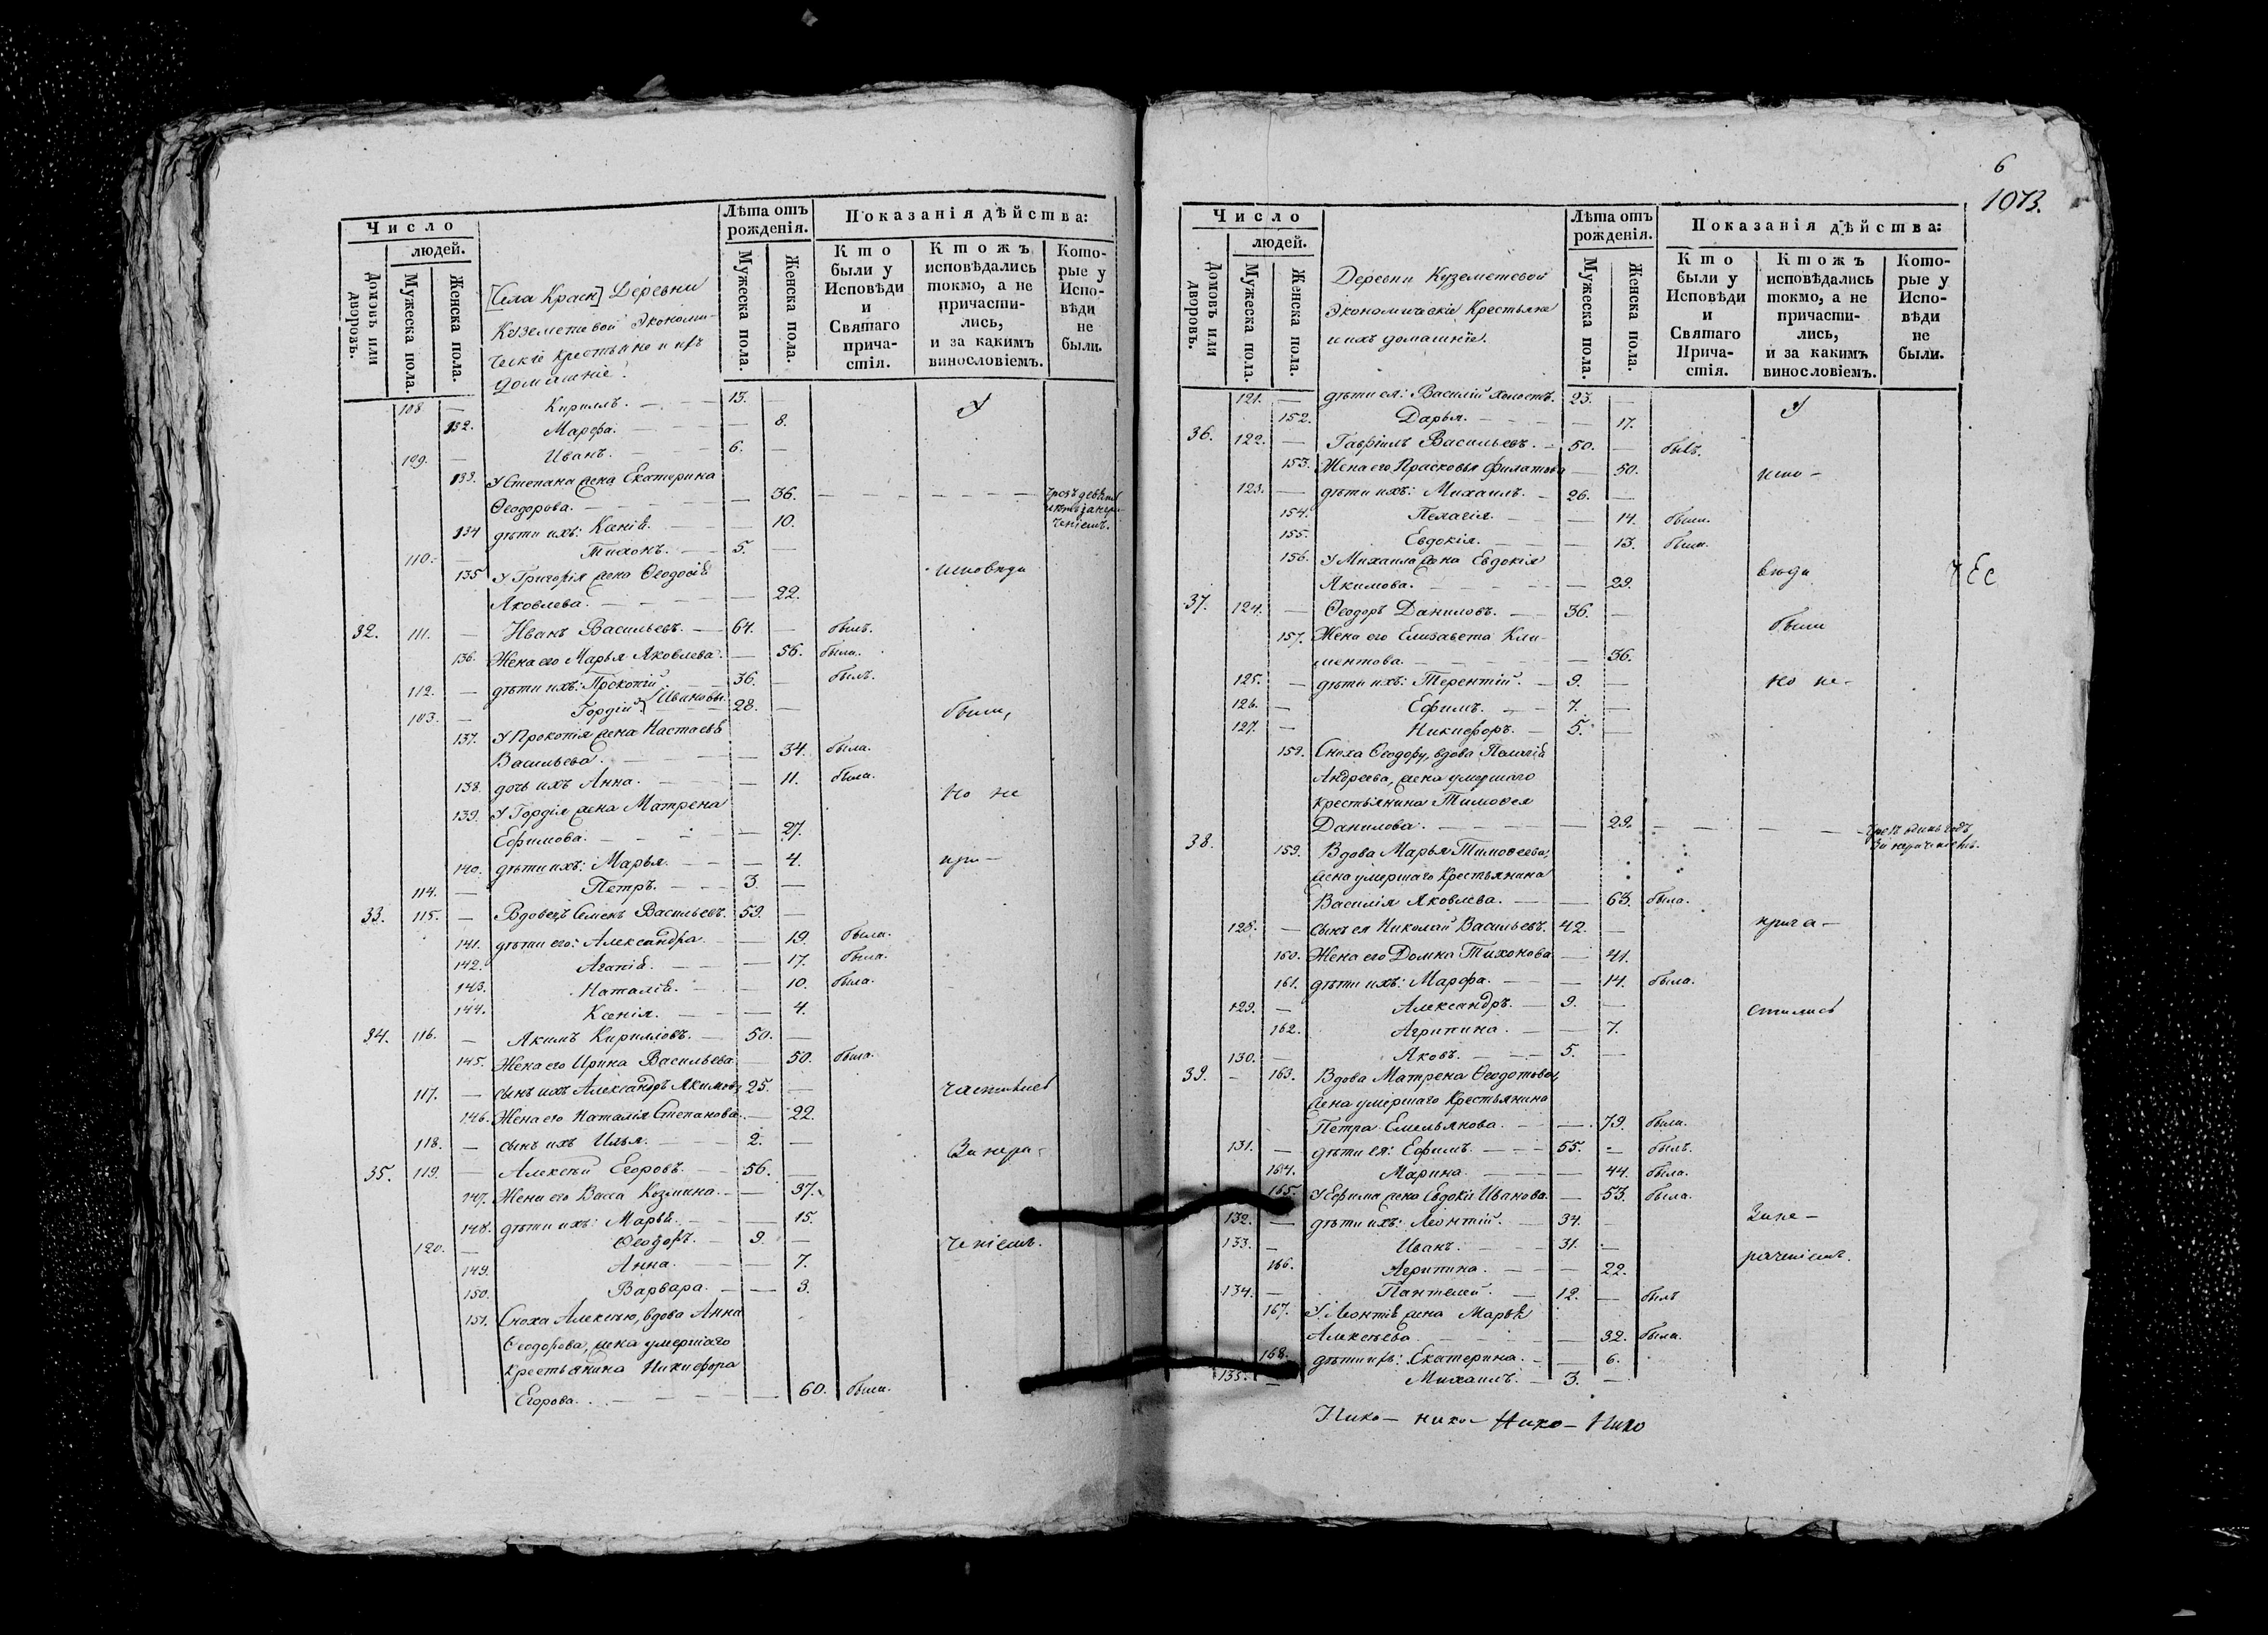 Число
людей.
Домовъ или дворовъ.
Мужеска пола.
Женска пола.
[Села Красн] Деревни
Куземетевой Экономи-
ческіе крестьяне и ихъ
домашніе.
Лѣта отъ
рожденія.
Мужеска пола.
Женска пола.
Показанія дѣйства:
Кто
были у
Исповѣди
и
Святаго
прича-
стія.
Ктожъ
исповѣдались
токмо, а не
причасти-
лись,
и за какимъ
винословіемъ.
Кото-
рые у
Испо-
вѣди
не
были.
108. — Кириллъ. — 13. — У
132. Марѳа. — — 8.
109. — Иванъ. — 6. —
133. У Степана жена Екатерина
Ѳеодорова. — — 36. — — —
134 дѣти ихъ: Ксенія. — 10.
110. — Тихонъ. — 5. —
135 У Григорія жена Ѳеодосія исповѣди
Яковлева. — — 22.
32. 111. — Иванъ Васильевъ. — 64. — былъ.
136. Жена его Марья Яковлева. — 56. была.
112. — дѣти ихъ: Прокопій 36. — былъ.
103. — Гордій } Ивановы. 28. — были,
137. У Прокопія жена Настасья
Васильева. — — 34. была.
138. дочь ихъ Анна. — — 11. была.
139. У Гордія жена Матрена но не
Ефимова. — — 27.
140. дѣти ихъ: Марья. — — 4. при-
114. — Петръ. — 3. —
33. 115. — Вдовецъ Семенъ Васильевъ. 59. —
141. дѣти его: Александра. — 19. была.
142. Агапія. — — 17. была.
143. Наталія. — 10. была.
144. Ксенія. — — 4.
34. 116. — Акимъ Кирилловъ. — 50. —
145. Жена его Ирина Васильева — 50. была.
117. — сынъ ихъ Александръ Акимовъ 25. — частились
146. Жена его Наталія Степанова. — 22.
118. — сынъ ихъ Илья. — 2. — За нера-
35. 119. — Алексѣй Егоровъ. — 56. —
147. Жена его Васса Козмина. — 37.
148. дѣти ихъ: Марья. — — 15.
120. — Ѳеодоръ. — 9. — ченіемъ.
149. Анна. — — 7.
150. Варвара. — — 3.
151. Сноха Алексѣю, вдова Анна
Ѳеодорова, жена умершаго
крестьянина Никифора
Егорова. — — 60. была.
6
1073.
Число
людей.
Домовъ или дворовъ.
Мужеска пола.
Женска пола.
Деревни Куземетевой
Экономическіе Крестьяне
и ихъ домашніе.
Лѣта отъ
рожденія.
Мужеска пола.
Женска пола.
Показанія дѣйства:
Кто
были у
Исповѣди
и
Святаго
Прича-
стія.
Ктожъ
исповѣдались
токмо, а не
причасти-
лись,
и за какимъ
винословіемъ.
Кото-
рые у
Испо-
вѣди
не
были.
121. — дѣти ея: Василій холостъ. 23. — У
152. Дарья. — — 17.
36. 122. — Гавріилъ Васильевъ. — 50. — былъ.
153. Жена его Прасковья Филатова — 50. испо-
123. — дѣти ихъ: Михаилъ. — 26. —
154. Пелагія. — — 14. была.
155. Евдокія. — — 13. была.
156. У Михаила жена Евдокія вѣди
Акимова. — — 29.
37. 124. — Ѳеодоръ Даниловъ. — 36. — были
157. Жена его Елизавета Кли-
ментова. — — 36.
125. — дѣти ихъ: Терентій. — 9. — но не-
126. — Ефимъ. — 7. —
127. — Никифоръ. — 5. —
159. Сноха Ѳеодору, вдова Пелагія
Андреева, жена умершаго
крестьянина Тимоѳея
Данилова. — — 29. — — — чрезъ одинъ годъ
за нераченіемъ.
38. 159. Вдова Марья Тимоѳеева,
жена умершаго Крестьянина
Василія Яковлева. — — 63. была.
128. — сынъ ея Николай Васильевъ. 42. — прича-
160. Жена его Домна Тихонова — 41.
161. дѣти ихъ: Марѳа. — — 14. была.
129. — Александръ. — 9. — стились
162. Агрипина. — — 7.
130. — Яковъ. — 5. —
39. — 163. Вдова Матрена Ѳеодотова,
жена умершаго Крестьянина
Петра Емельянова. — — 79. была.
131. — дѣти ея: Ефимъ. — 55. — былъ.
164. Марина. — — 44. была.
165. У Ефима жена Евдокія Иванова. — 53. была.
132. — дѣти ихъ: Леонтій. — 34. — За не-
133. — Иванъ. — 31. —
166. Агрипина. — — 22. раченіемъ.
134. — Пантелей. — 12. — былъ
167. У Леонтія жена Марья
Алексѣева. — — 32. была.
168. дѣти ихъ: Екатерина. — — 6.
135. — Михаилъ. — 3. —
Нико- нико- Нико- Нико